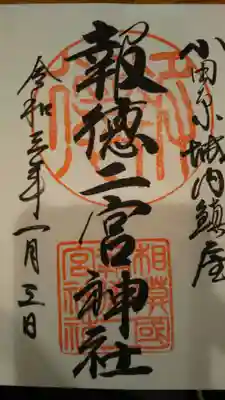 小田原城内鎮座
報徳二宮神社
令和三年一月三日
相模國
報徳二宮神社